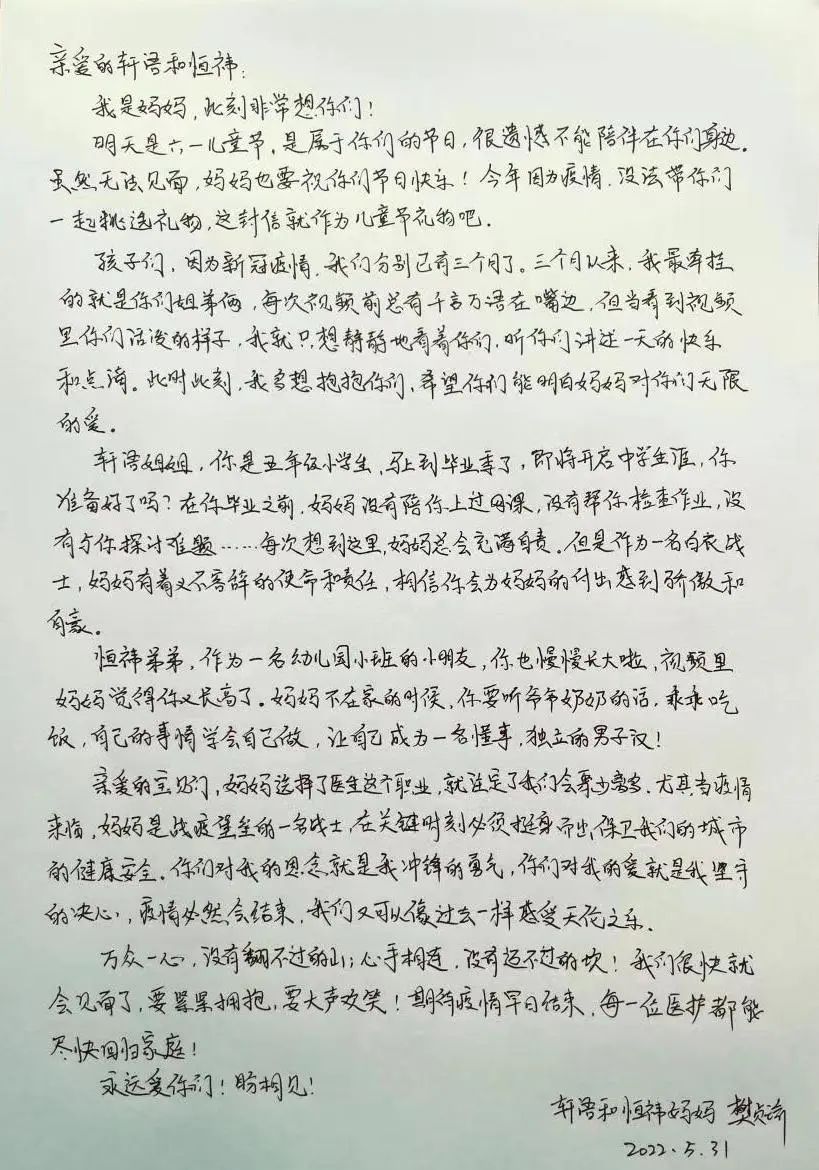 亲爱的轩语和恒祎：
我是妈妈，此刻非常想你们！
明天是六一儿童节，是属于你们的节日，很遗憾不能陪伴在你们身边。
虽然无法见面，妈妈也要祝你们节日快乐！今年因为疫情，没法带你们
一起挑选礼物，这封信就作为儿童节礼物吧。
孩子们，因为新冠疫情，我们分别已有三个月了。三个月以来，我最牵挂
的就是你们姐弟俩，每次视频前总有千言万语在嘴边，但当看到视频
里你们活泼的样子，我就只想静静地看着你们，听你们讲述一天的快乐
和点滴。此时此刻，我多想抱抱你们，希望你们能明白妈妈对你们无限
的爱。
轩语姐姐，你是五年级小学生，马上到毕业季了，即将开启中学生涯，你
准备好了吗？在你毕业之前，妈妈没有陪你上过网课，没有帮你检查作业，没
有与你探讨难题……每次想到这里，妈妈总会充满自责。但是作为一名白衣战
士，妈妈有着义不容辞的使命和责任，相信你会为妈妈的付出感到骄傲和
自豪。
恒祎弟弟，作为一名幼儿园小班的小朋友，你也慢慢长大啦，视频里
妈妈觉得你又长高了。妈妈不在家的时候，你要听爷爷奶奶的话，乖乖吃
饭，自己的事情学会自己做，让自己成为一名懂事，独立的男子汉！
亲爱的宝贝们，妈妈选择了医生这个职业，就注定了我们会聚少离多，尤其当疫情
来临，妈妈是战疫堡垒的一名战士，在关键时刻必须挺身而出，保卫我们的城市
的健康安全。你们对我的思念就是我冲锋的勇气，你们对我的爱就是我坚守
的决心，疫情必然会结束，我们又可以像过去一样感受天伦之乐。
万众一心，没有翻不过的山；心手相连，没有迈不过的坎！我们很快就
会见面了，要紧紧拥抱，要大声欢笑！期待疫情早日结束，每一位医护都能
尽快回归家庭！
永远爱你们！盼相见！
轩语和恒祎妈妈 樊
2022.5.31